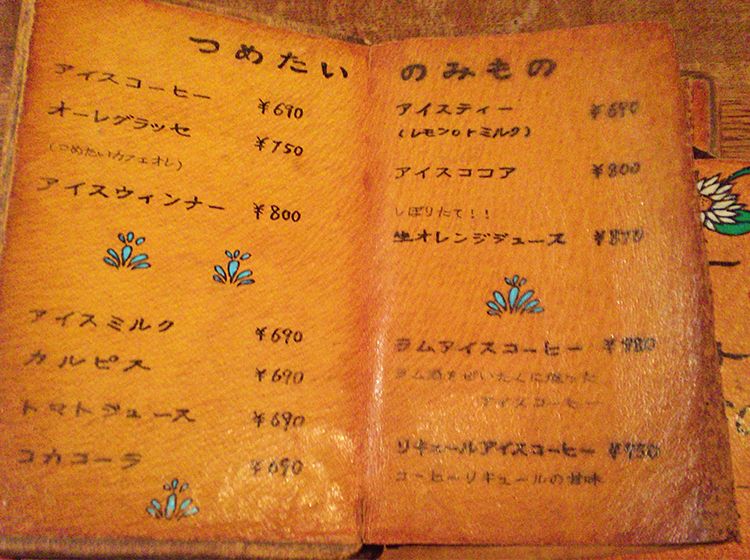 つめたい のみもの
アイスコーヒー ¥690
オーレグラッセ ¥750
(つめたいカフェオレ)
アイスウィンナー ¥800
アイスミルク ¥690
カルピス ¥690
トマトジュース ¥690
コカコーラ ¥690
アイスティー ¥690
(レモンorミルク)
アイスココア ¥800
しぼりたて!!
生オレンジジュース
ラムアイスコーヒー
ラム酒をぜいたくに使った
アイスコーヒー
リキュールアイスコーヒー
コーヒーリキュールの甘味